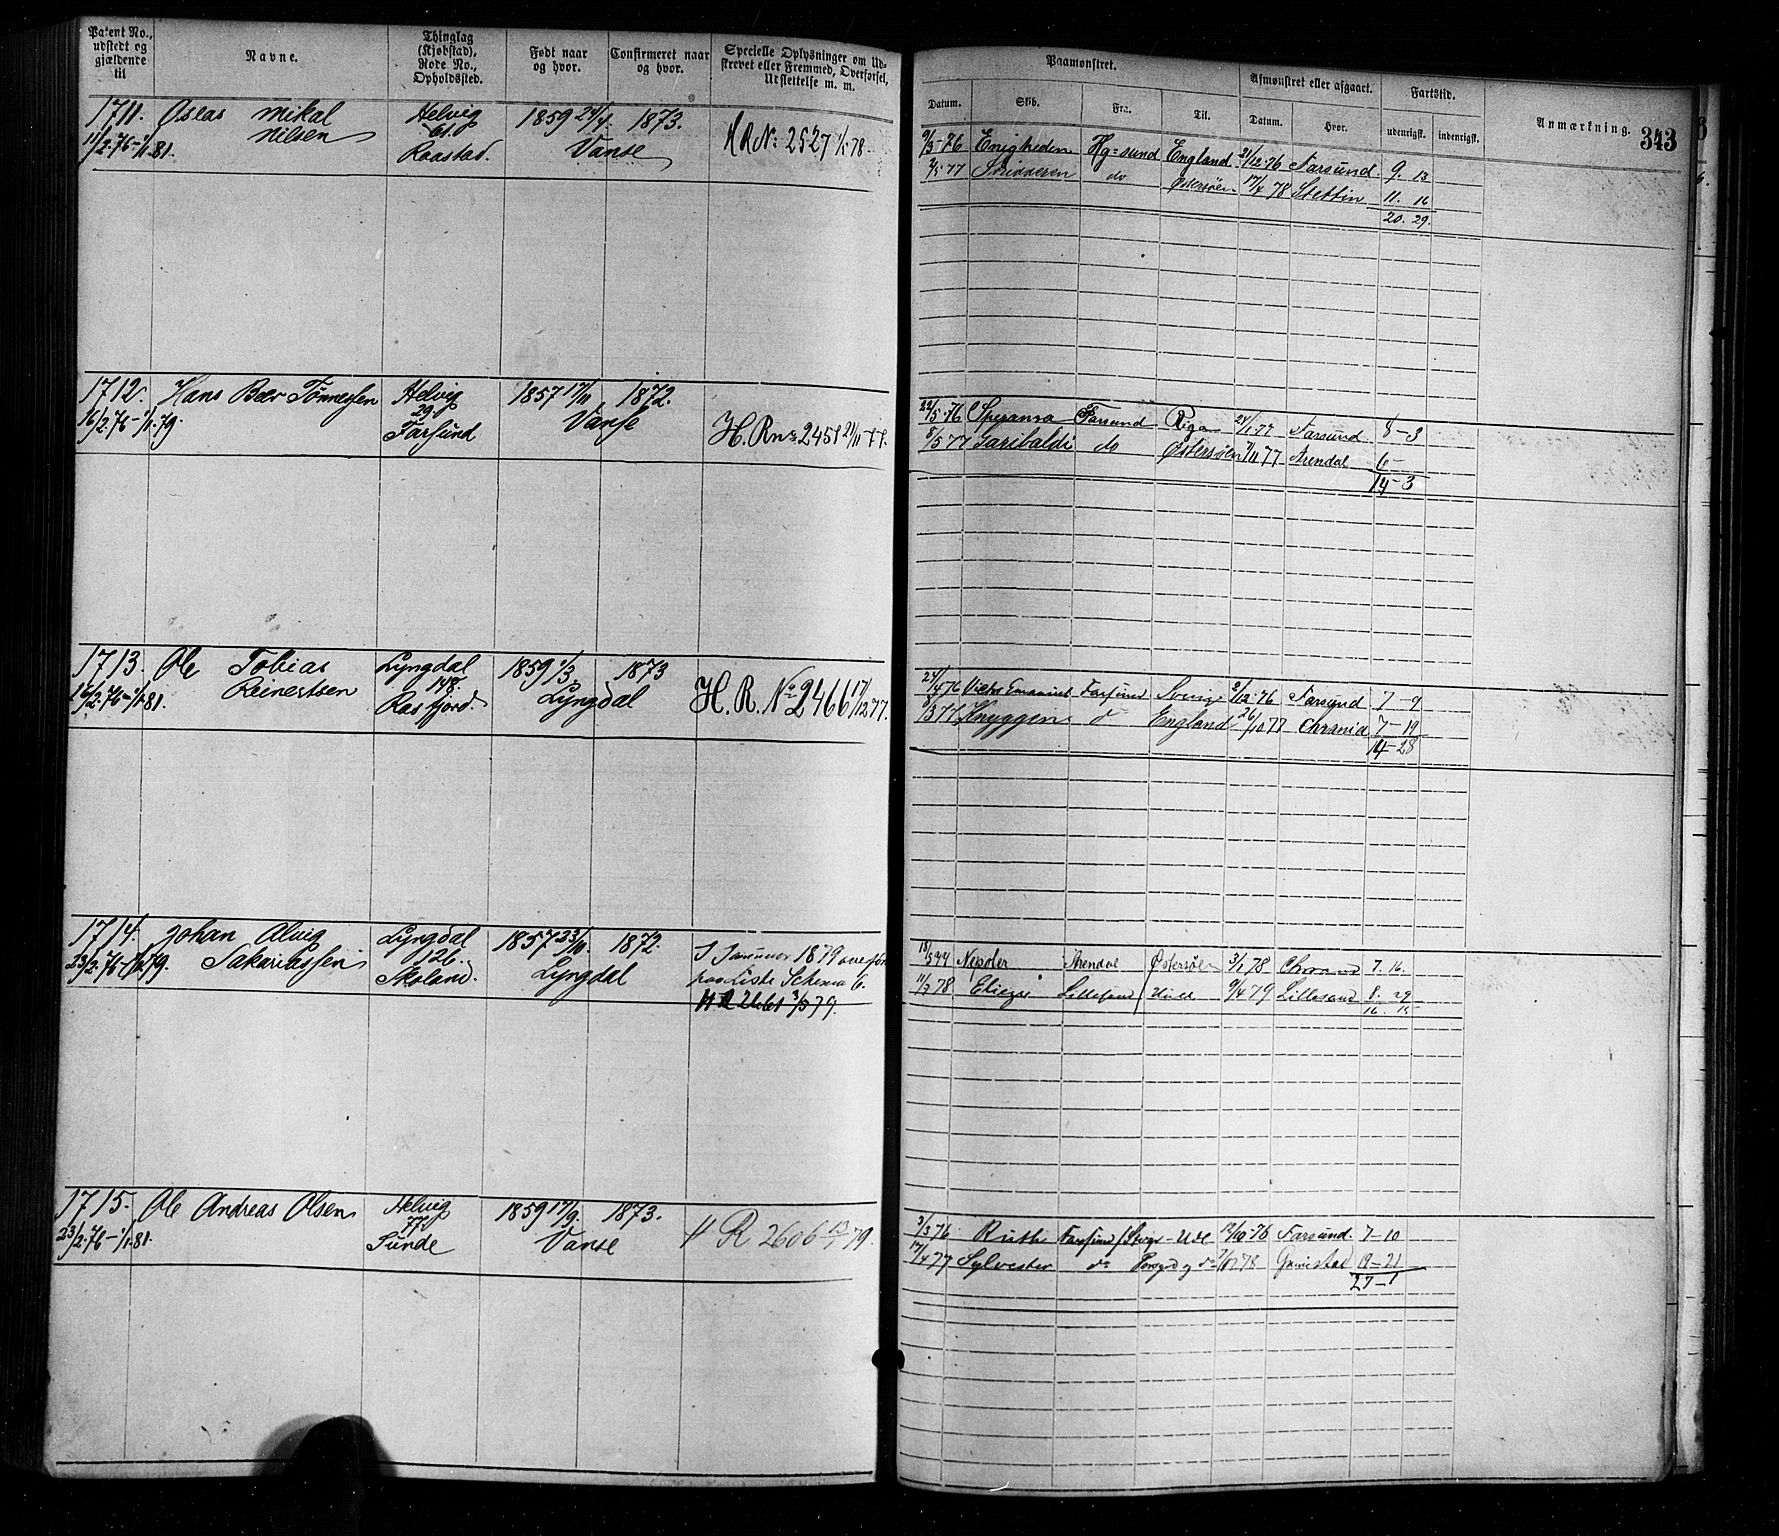 Patent No., udstedt og gjældende til
Navne.
Thinglag (Kjøbstad), Rode No., Opholdssted.
Født naar og hvor.
Confirmeret naar og hvor.
Specielle Oplysninger om Udskrevet eller Fremmed, Overførsel, Udslettelse m. m.
Paamønstret.
Datum. Skib. Fra. Til.
Afmønstret eller afgaaet.
Datum. Hvor.
Fartstid.
udenrigsk. indenrigsk.
Anmærkning.
343
1711. Oseas Mikal Helvig 1859 24/4. 1873.
11/2.76-1/1.81. Nilsen 61. Raastad. Vanse H R No: 2527 1/5 78.
9/3-76 Enigheden Hg=sund England 21/12.76 Farsund. 9. 13
2/5 77 do Østersøen 17/4 78 Stettin 11. 16
20. 29.
1712. Hans Beer Tønnessen Helvig 1857 17/11 1872.
16/2.76-1/1.79. 29. Farsund Vanse H. R no 2451 21/11-77.
22/5-76 Speranza Farsund Riga 24/1.77 Farsund 8-3
8/5 77 Garibaldi do Østersøen 7/11 77 Arendal 6-
14-3
1713. Ole Tobias Lyngdal 1859 1/3 1873
16/2.76-1/1.81. Reinertsen 148. Rosfjord. Lyngdal H. R. No 2466 17/12 77.
24/4 76 Victor Emanuel Farsund 2/12-76 Farsund 7-9
/3 77 Knyggen do England 26/10 77 Chrania 7-19
14-28
1714. Johan Alvig Lyngdal 1857 23/10. 1872.
23/2.76- 79. Sakariassen 126. Skoland. Lyngdal
I Januar 1879 overført
paa Liste Schema 6.
H R 2661 3/5 79.
18/5 77 Arendal Østersøen 3/1 78 7. 16.
11/3 78 Eliezer Lillesand 9/4 79 Lillesand 8. 29
16. 15
1715. Ole Andreas Olsen Helvig 1859 17/9. 1873.
23/2.76-1/1.81. 77. Sunde Vanse H R 2606 13/1 79.
3/3 76 Ruth Farsund 12/10-76 Farsund. 7-10
17/4 77 Sylvester do 78 Grimstad 19-21
27-1